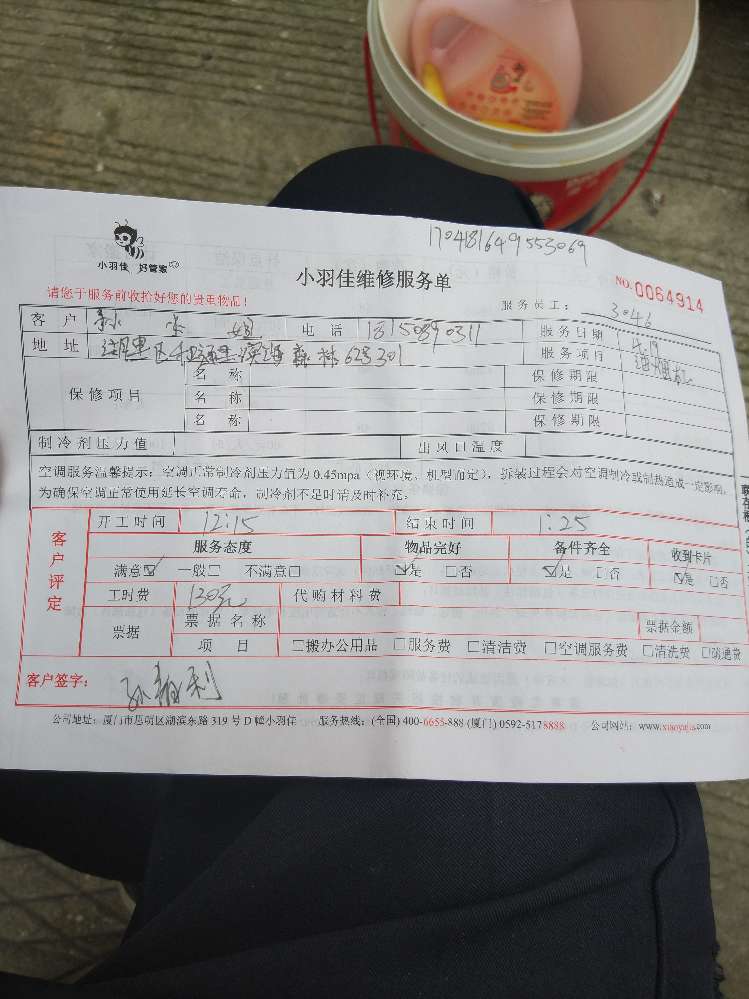 小羽佳 好管家
1704181649553069
小羽佳维修服务单
NO.0064914
请您于服务前收拾好您的贵重物品！
服务员工： 3046
客户 电话 18150890311 服务日期 4.19
地址 628301 服务项目 油烟机
保修项目 名称 保修期限
名称 保修期限
名称 保修期限
制冷剂压力值 出风口温度
空调服务温馨提示：空调正常制冷剂压力值为0.45mpa（视环境、机型而定），拆装过程会对空调制冷或制热造成一定影响，
为确保空调正常使用延长空调寿命，制冷剂不足时请及时补充。
客户评定
开工时间 12:15 结束时间 1:25
服务态度 物品完好 备件齐全 收到卡片
满意☑ 一般□ 不满意□ ☑是 □否 ☑是 □否 ☑是 □否
工时费 130元 代购材料费
票据 票据名称 票据金额
项目 □搬办公用品 □服务费 □清洁费 □空调服务费 □清洗费 □疏通费
客户签字：
公司地址：厦门市思明区湖滨东路319号D幢小羽佳 服务热线：(全国) 400-6655-888 (厦门) 0592-5178888 公司网站：www.xiaoyujia.com